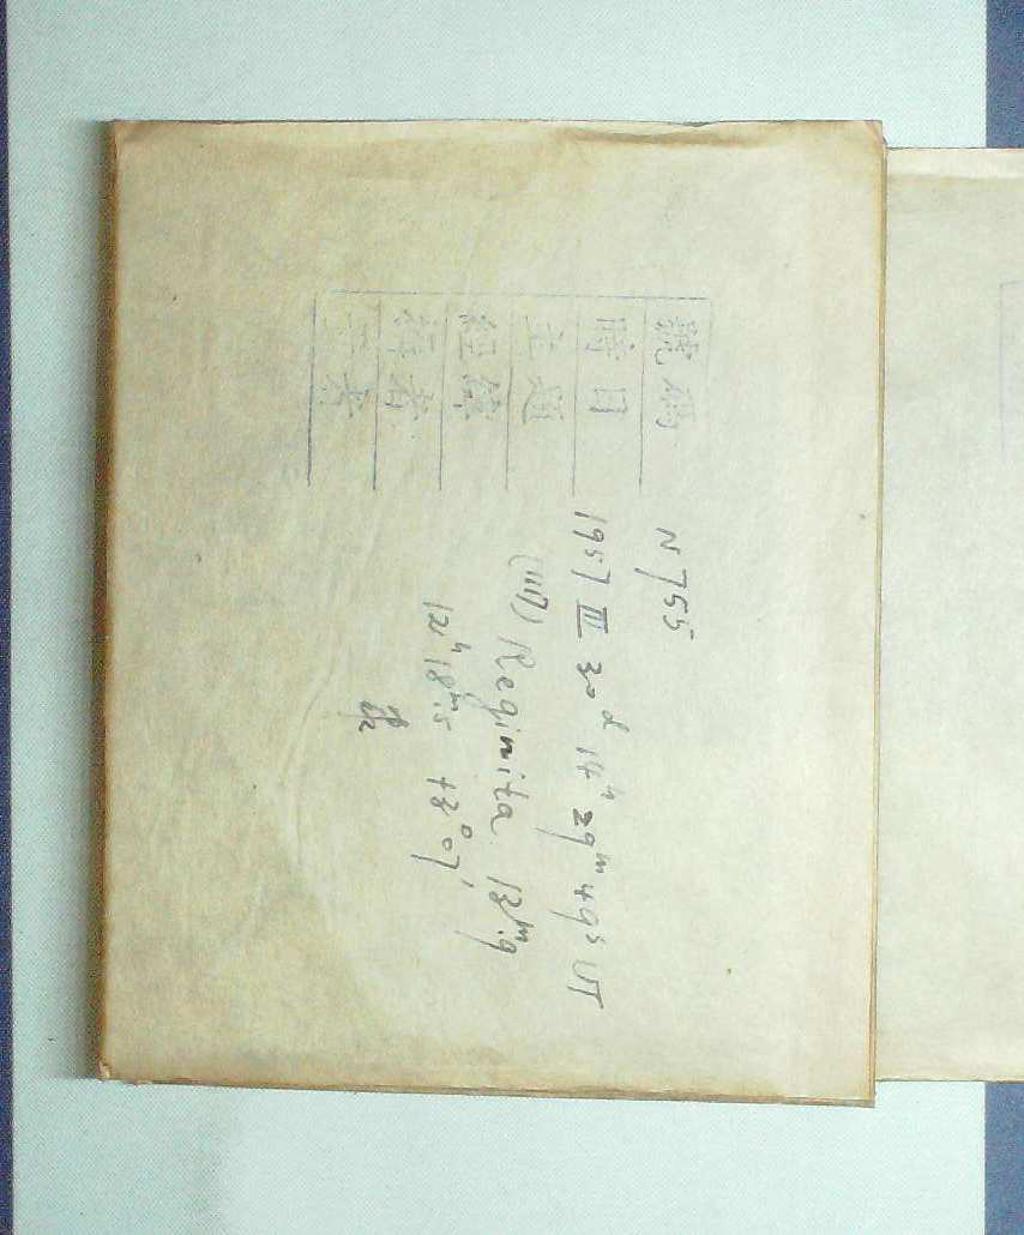 號碼 N 755
時日 1957 III 30ᵈ 14ʰ 29ᵐ 49ˢ UT
主題 (1117) Reginita 13ᵐ.9
經緯 12ʰ 18ᵐ.5 +3° 07′
者
者